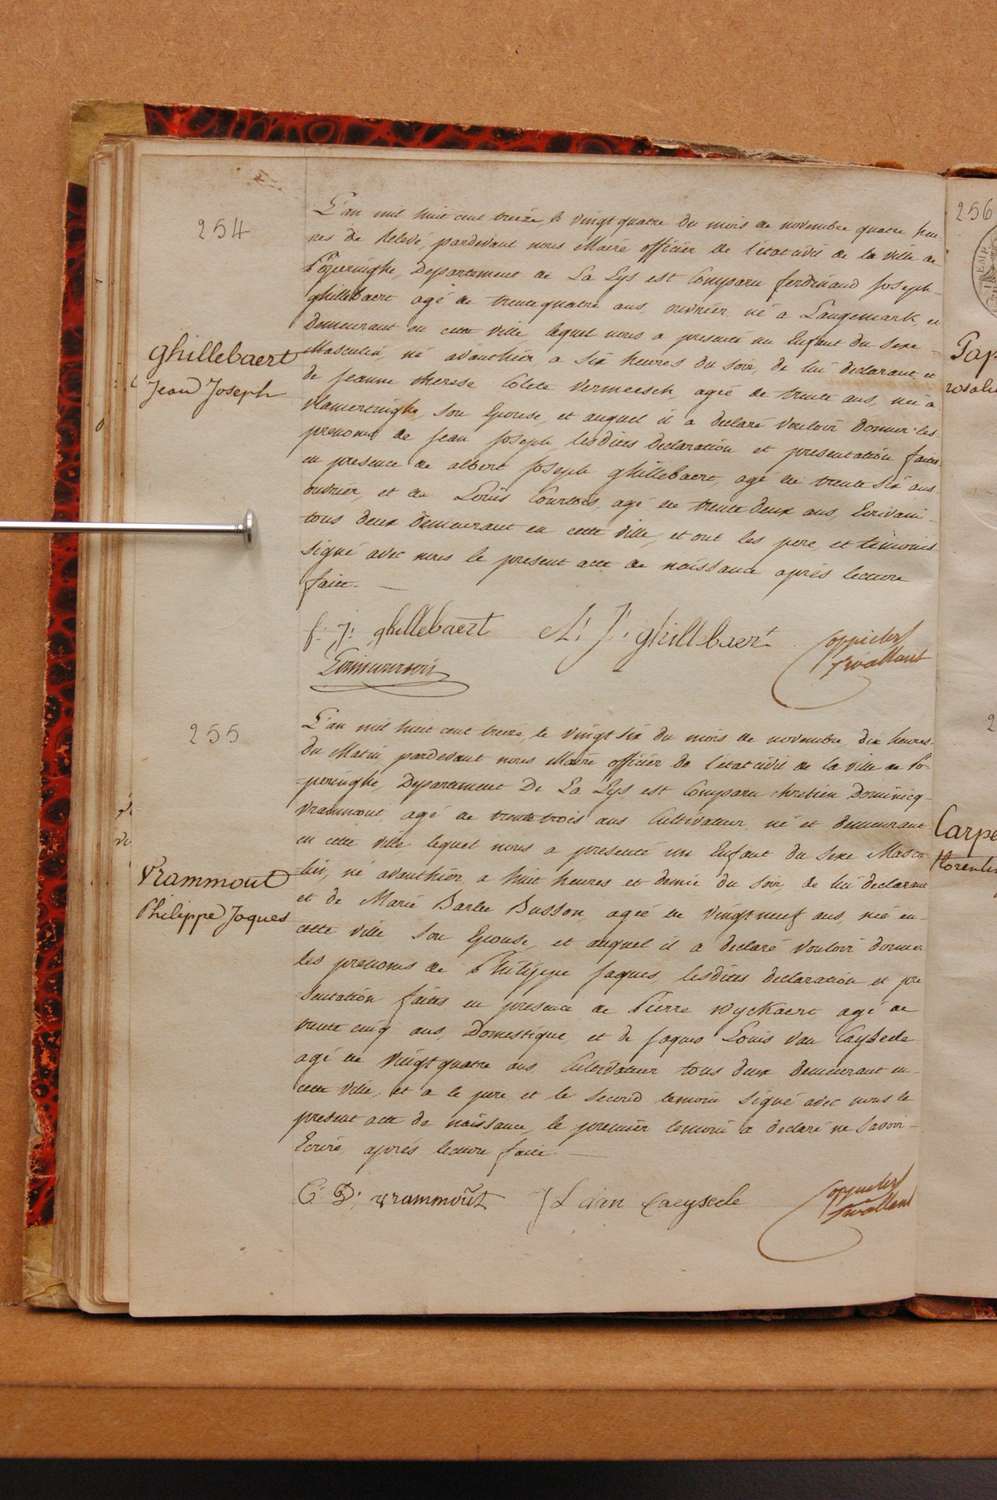 254
Ghillebaert
Jean Joseph
L'an mil huit cent treize le vingt quatre du mois de novembre quatre heu
res de Relevé, pardevant nous Maire officier de l'etat civil de la ville de
Poperinghe, Departement de La Lys est Comparu ferdinand Joseph
ghillebaert agé de trente quatre ans, ouvrier, né à Langemark, et
Demeurant en cette ville lequel nous a presenté un Enfant du sexe
Masculin, né avanthier a six heures du soir, de lui declarant et
de Jeanne therese Colete Vermeesch, agée de trente ans, née a
Vlamertinghe, son Epouse, et auquel il a declaré vouloir donner les
prenoms de Jean Joseph lesdites declaration et presentation faites
en presence de albert Joseph ghillebaert, agé de trente six ans
ouvrier, et de Louis agé de trente deux ans, Ecrivain
tous deux demeurant en cette ville, et ont les pere, et temoins
signé avec nous le present acte de naissance après lecture
faite. —
f: J: ghillebaert A: J: ghillebaert
255
Vrammout
Philippe Jaques
L'an mil huit cent treize, le vingt six du mois de novembre dix heures
du Matin pardevant nous Maire officier de l'etat civil de la ville de Po-
peringhe, Departement De La Lys est Comparu chretien Dominicq
vrammout, agé de trente trois ans Cultivateur né et demeurant
en cette ville lequel nous a presenté un Enfant du sexe Mascu
lin, né avanthier, a huit heures et demie du soir de lui declarant
et de Marie Barbe Busson, agée de vingt neuf ans, née en
cette ville son Epouse, et auquel il a declaré vouloir donner
les prenoms de Philippe Jaques, lesdites declaration et pre
sentation faites en presence de Pierre Wyckaert agé de
trente cinq ans, Domestique, et de Jaques Louis van Cayseele
agé de vingt quatre ans Cultivateur tous deux demeurant en
cette ville, et a le pere et le second temoin signé avec nous le
present acte de naissance, le premier temoin a declaré ne savoir
Ecrire, après lecture faite —
C: D: vrammout J L van Caeyseele
256
Pap
rosalie
Carpe
florentin